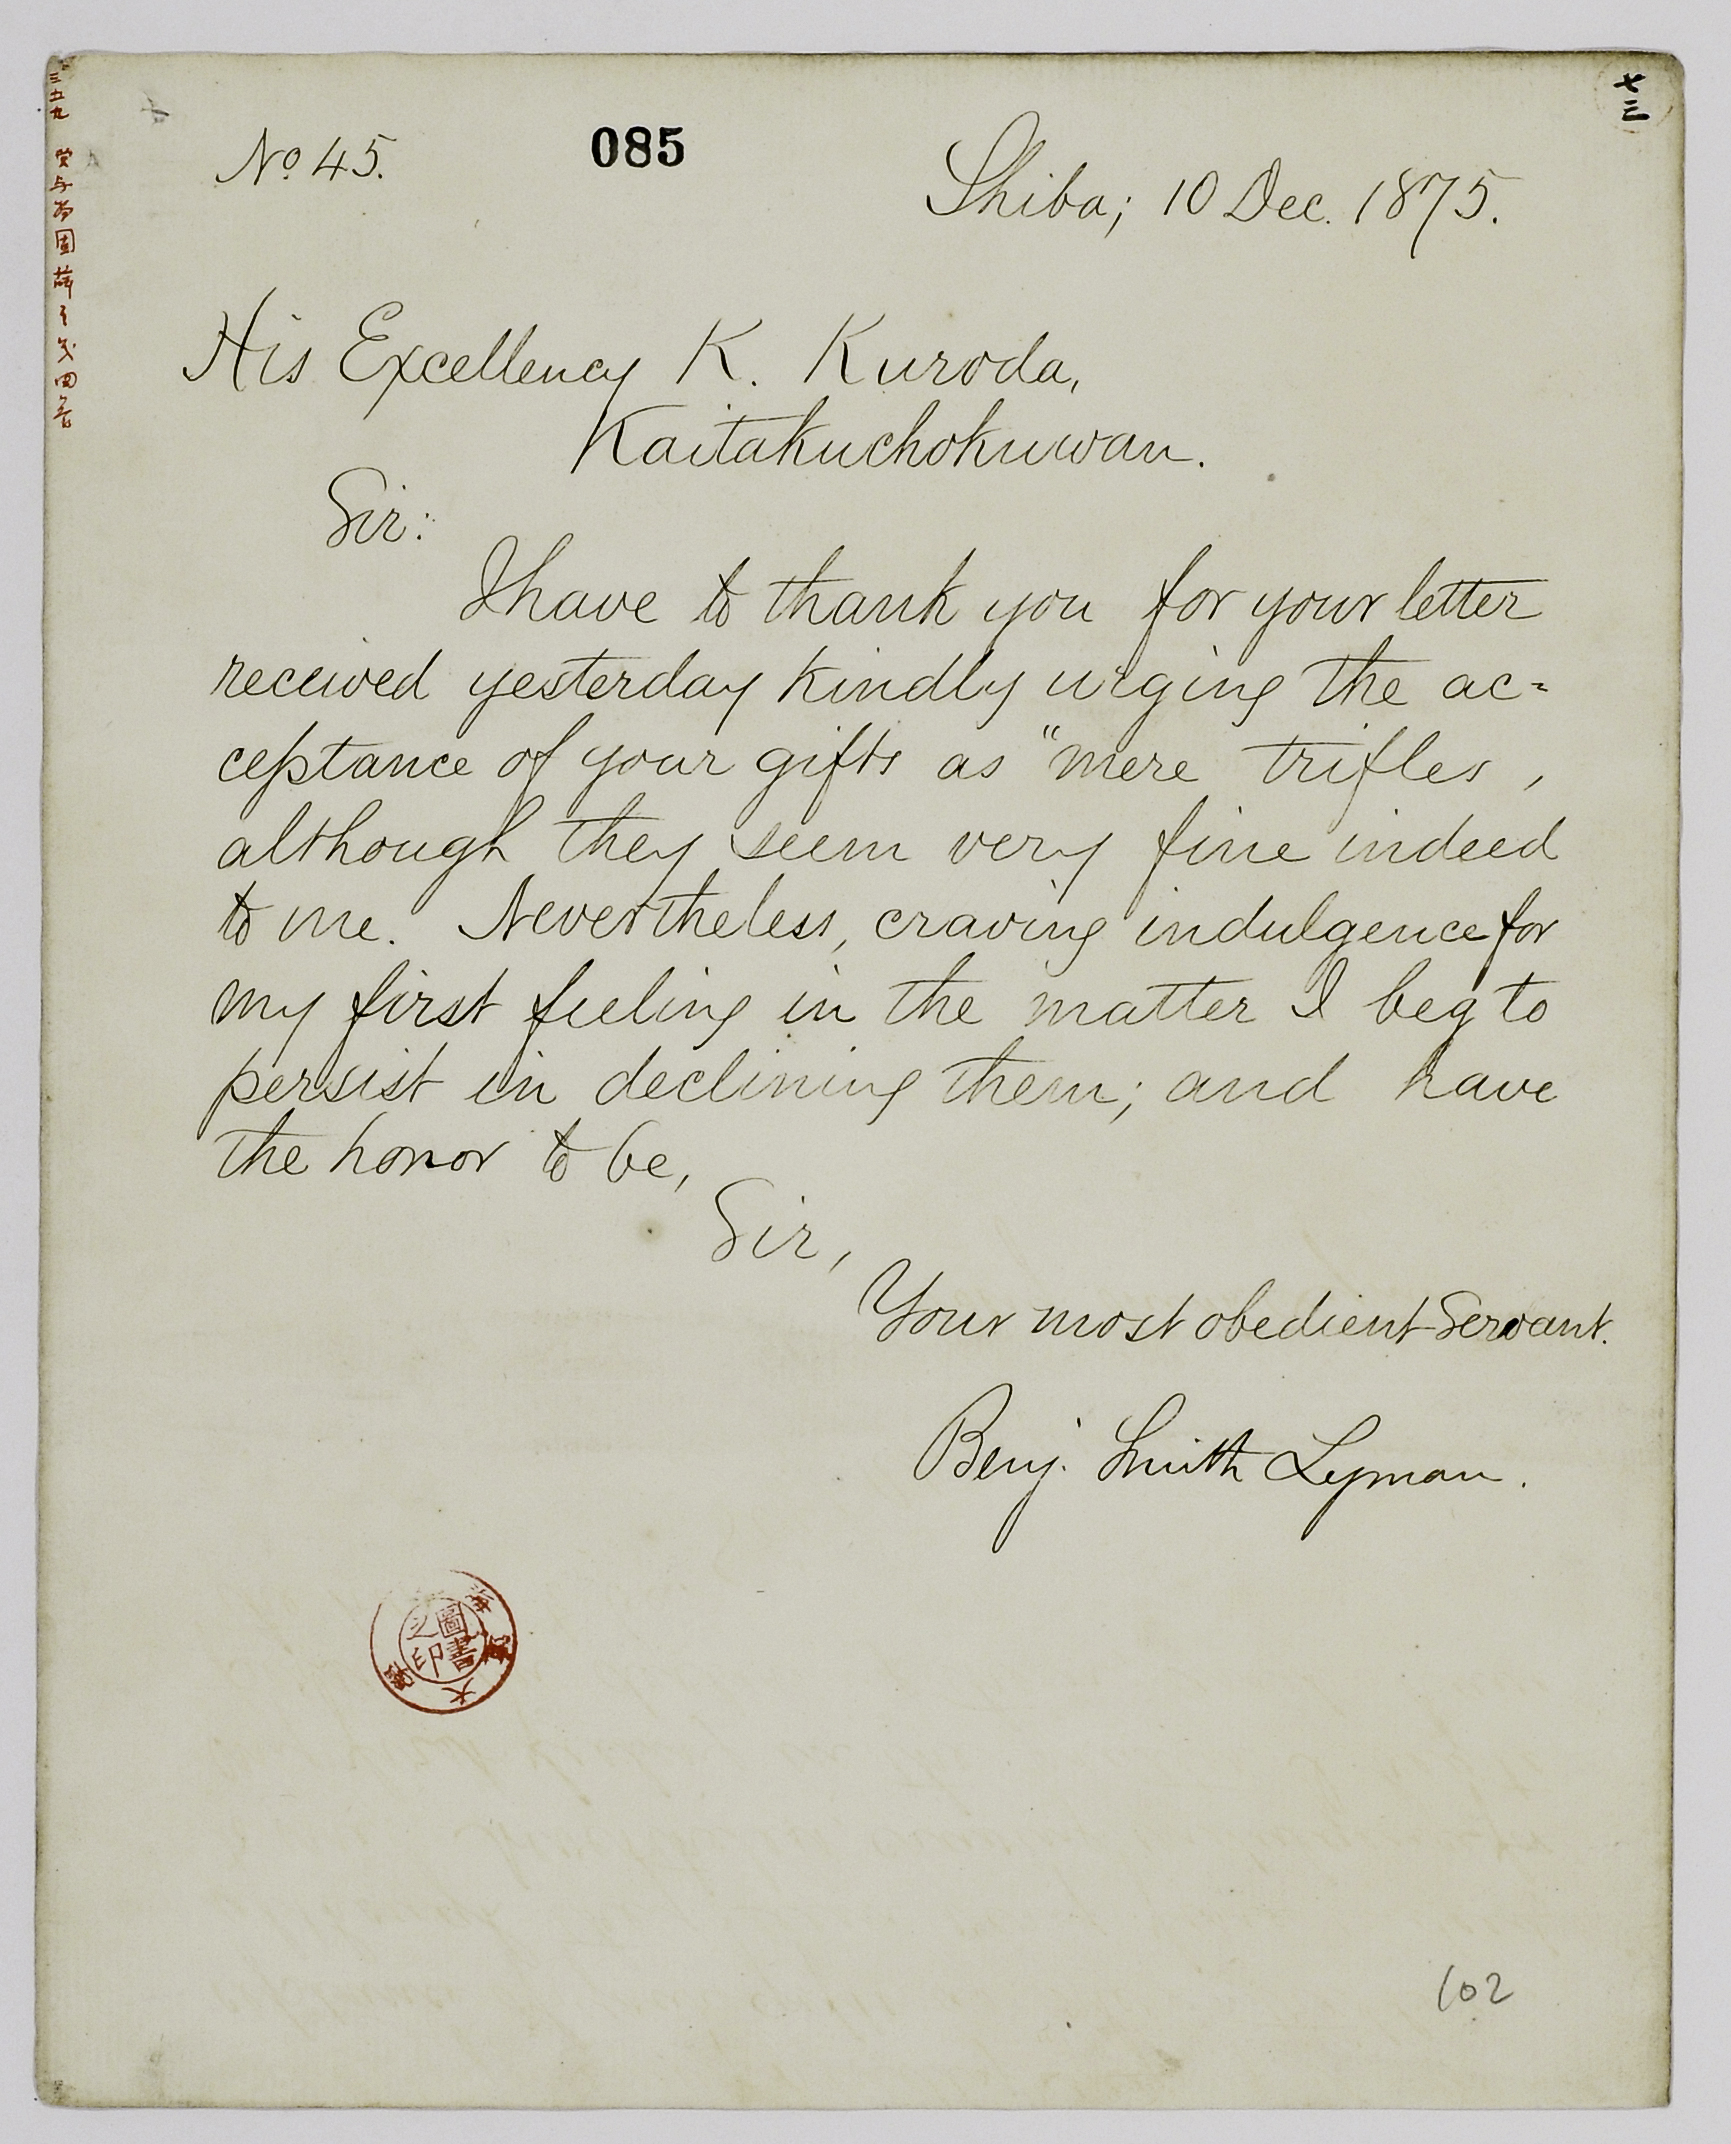 No. 45.
085
七三
Shiba; 10 Dec. 1875.
His Excellency K. Kuroda,
Kaitakuchokuwan.
Sir:
I have to thank you for your letter
received yesterday kindly urging the ac=
ceptance of your gifts as "mere trifles,
although they seem very fine indeed
to me. Nevertheless, craving indulgence for
my first feeling in the matter I beg to
persist in declining them; and have
the honor to be,
Sir,
Your most obedient Servant.
Benj. Smith Lyman.
圖書之印
102